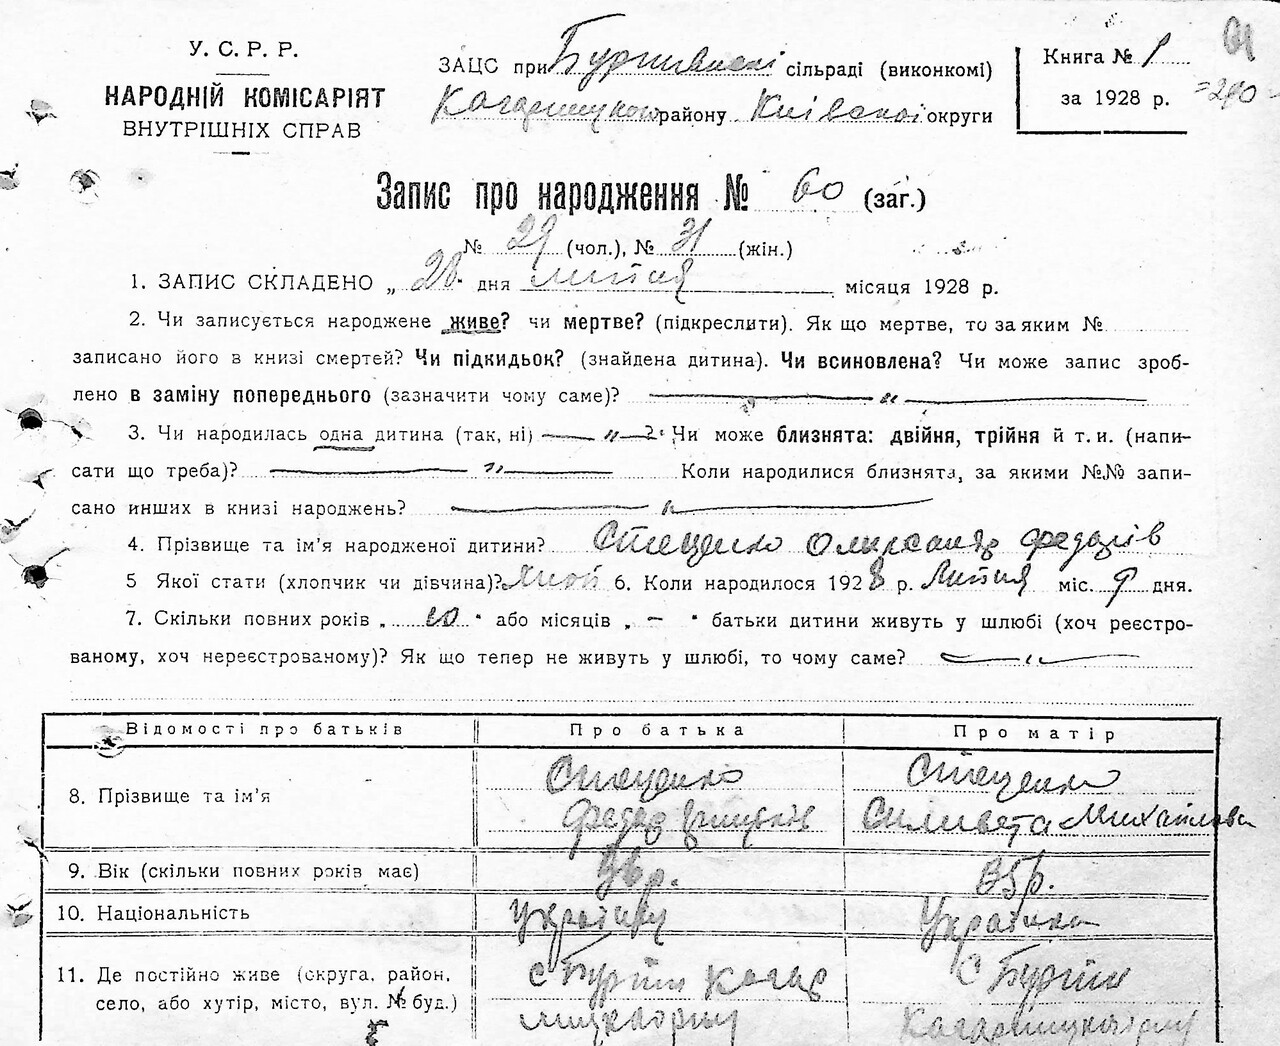 У. С. Р. Р.
НАРОДНІЙ КОМІСАРІЯТ
ВНУТРІШНІХ СПРАВ
ЗАЦС при сільраді (виконкомі)
району Київської округи
Книга № 1
за 1928 р.
=290
Запис про народження № 60 (заг.)
№ 29 (чол.), № 31 (жін.)
1. ЗАПИС СКЛАДЕНО „ 28 дня липня місяця 1928 р.
2. Чи записується народжене живе? чи мертве? (підкреслити). Як що мертве, то за яким №
записано його в книзі смертей? Чи підкидьок? (знайдена дитина). Чи всиновлена? Чи може запис зроб-
лено в заміну попереднього (зазначити чому саме)? — " —
3. Чи народилась одна дитина (так, ні) — " — ? Чи може близнята: двійня, трійня й т. и. (напи-
сати що треба)? — " — Коли народилися близнята, за якими №№ запи-
сано инших в книзі народжень? — " —
4. Прізвище та ім'я народженої дитини? Стеценко Олександр Федорів
5 Якої статі (хлопчик чи дівчина)? 6. Коли народилося 1928 р. Липня міс. 9 дня.
7. Скільки повних років „ 10 " або місяців „ — " батьки дитини живуть у шлюбі (хоч реєстро-
ваному, хоч нереєстрованому)? Як що тепер не живуть у шлюбі, то чому саме? — " —
Відомості про батьків Про батька Про матір
8. Прізвище та ім'я Стеценко Стеценко
Федор Михайлова
9. Вік (скільки повних років має) р. 35 р.
10. Національність Українка
11. Де постійно живе (округа, район, с с
село, або хутір, місто, вул. № буд.)